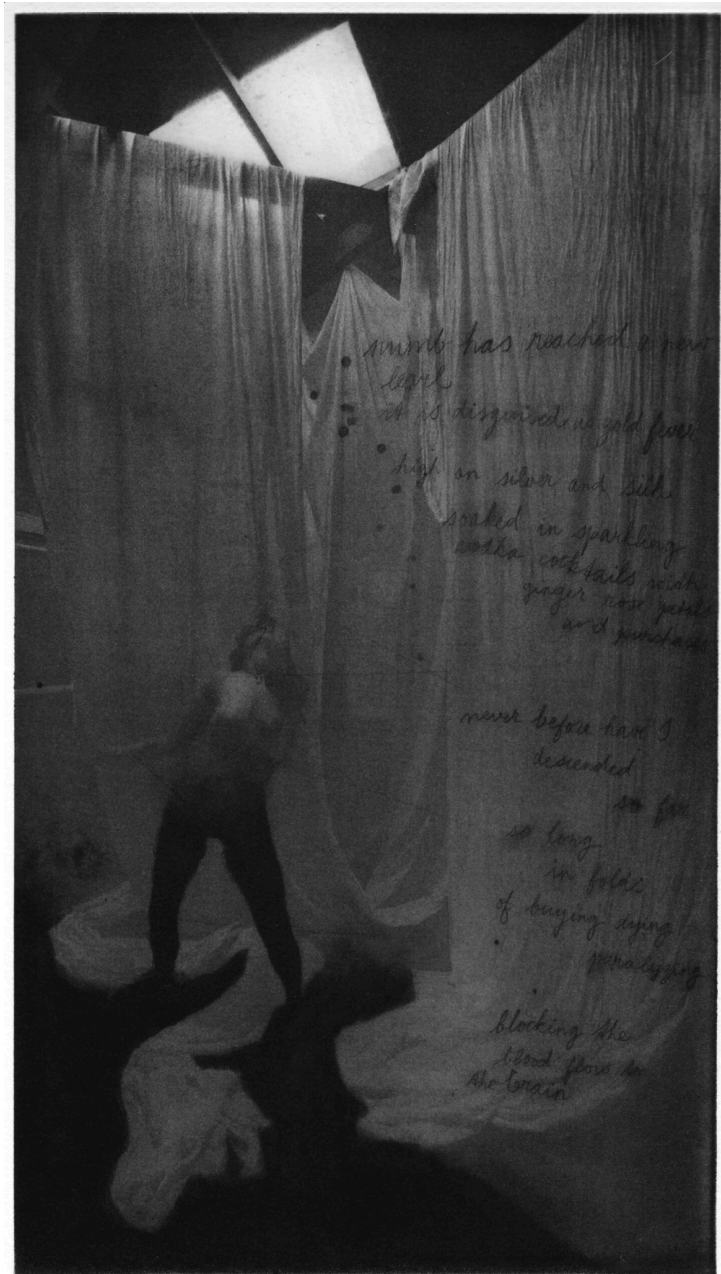 numb has reached a new
level
it is disguised as gold
high on silver and silk
soaked in sparkling
vodka cocktails with
ginger rose petals
and purchases
never before have I
descended
so far
so long
in folds
of buying dying
paralyzing
blocking the
blood flow to
the brain